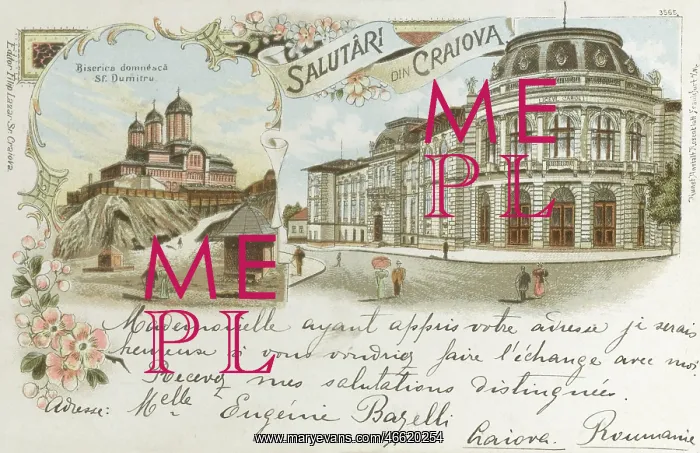 3565
SALUTÂRI DIN CRAIOVA
Biserica domnéscă
Sf. Dumitru.
Editor Filip Lazar. Sr. Craiova.
ME
PL
ME
PL
Mademoiselle ayant appris votre adresse je serais
heureuse si vous voudriez faire l'échange avec moi
Recevez mes salutations distinguées.
Adresse: Melle Eugénie Bazelli
Craiova. Roumanie
www.maryevans.com/46620254